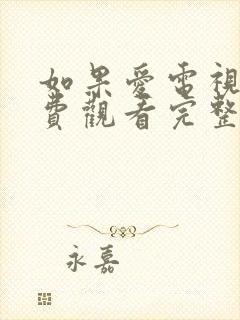 如果愛電視
費觀看完整
永嘉